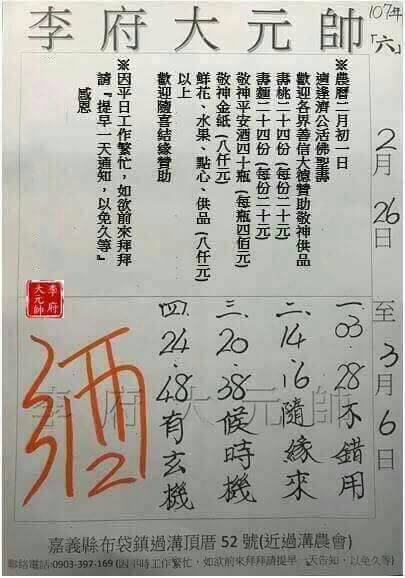 107年
「六」
李府大元帥
2月26日至3月6日
※農曆二月初一日
適逢濟公活佛聖壽
歡迎各界善信大德贊助敬神供品
壽桃二十四份(每份二十元)
壽麵二十四份(每份二十元)
敬神平安酒四十瓶(每瓶四佰元)
敬神金紙(八仟元)
鮮花、水果、點心、供品(八仟元)
以上
歡迎隨喜結緣贊助
※因平日工作繁忙，如欲前來拜拜
請『提早一天通知，以免久等』
感恩
李府
大元帥
一.03.28不錯用
二.14.16隨緣來
三.20.38候時機
四.24.48有玄機
李府大元帥
嘉義縣布袋鎮過溝頂厝52號(近過溝農會)
聯絡電話:0903-397-169(因平時工作繁忙，如欲前來拜拜請提早一天告知，以免久等)